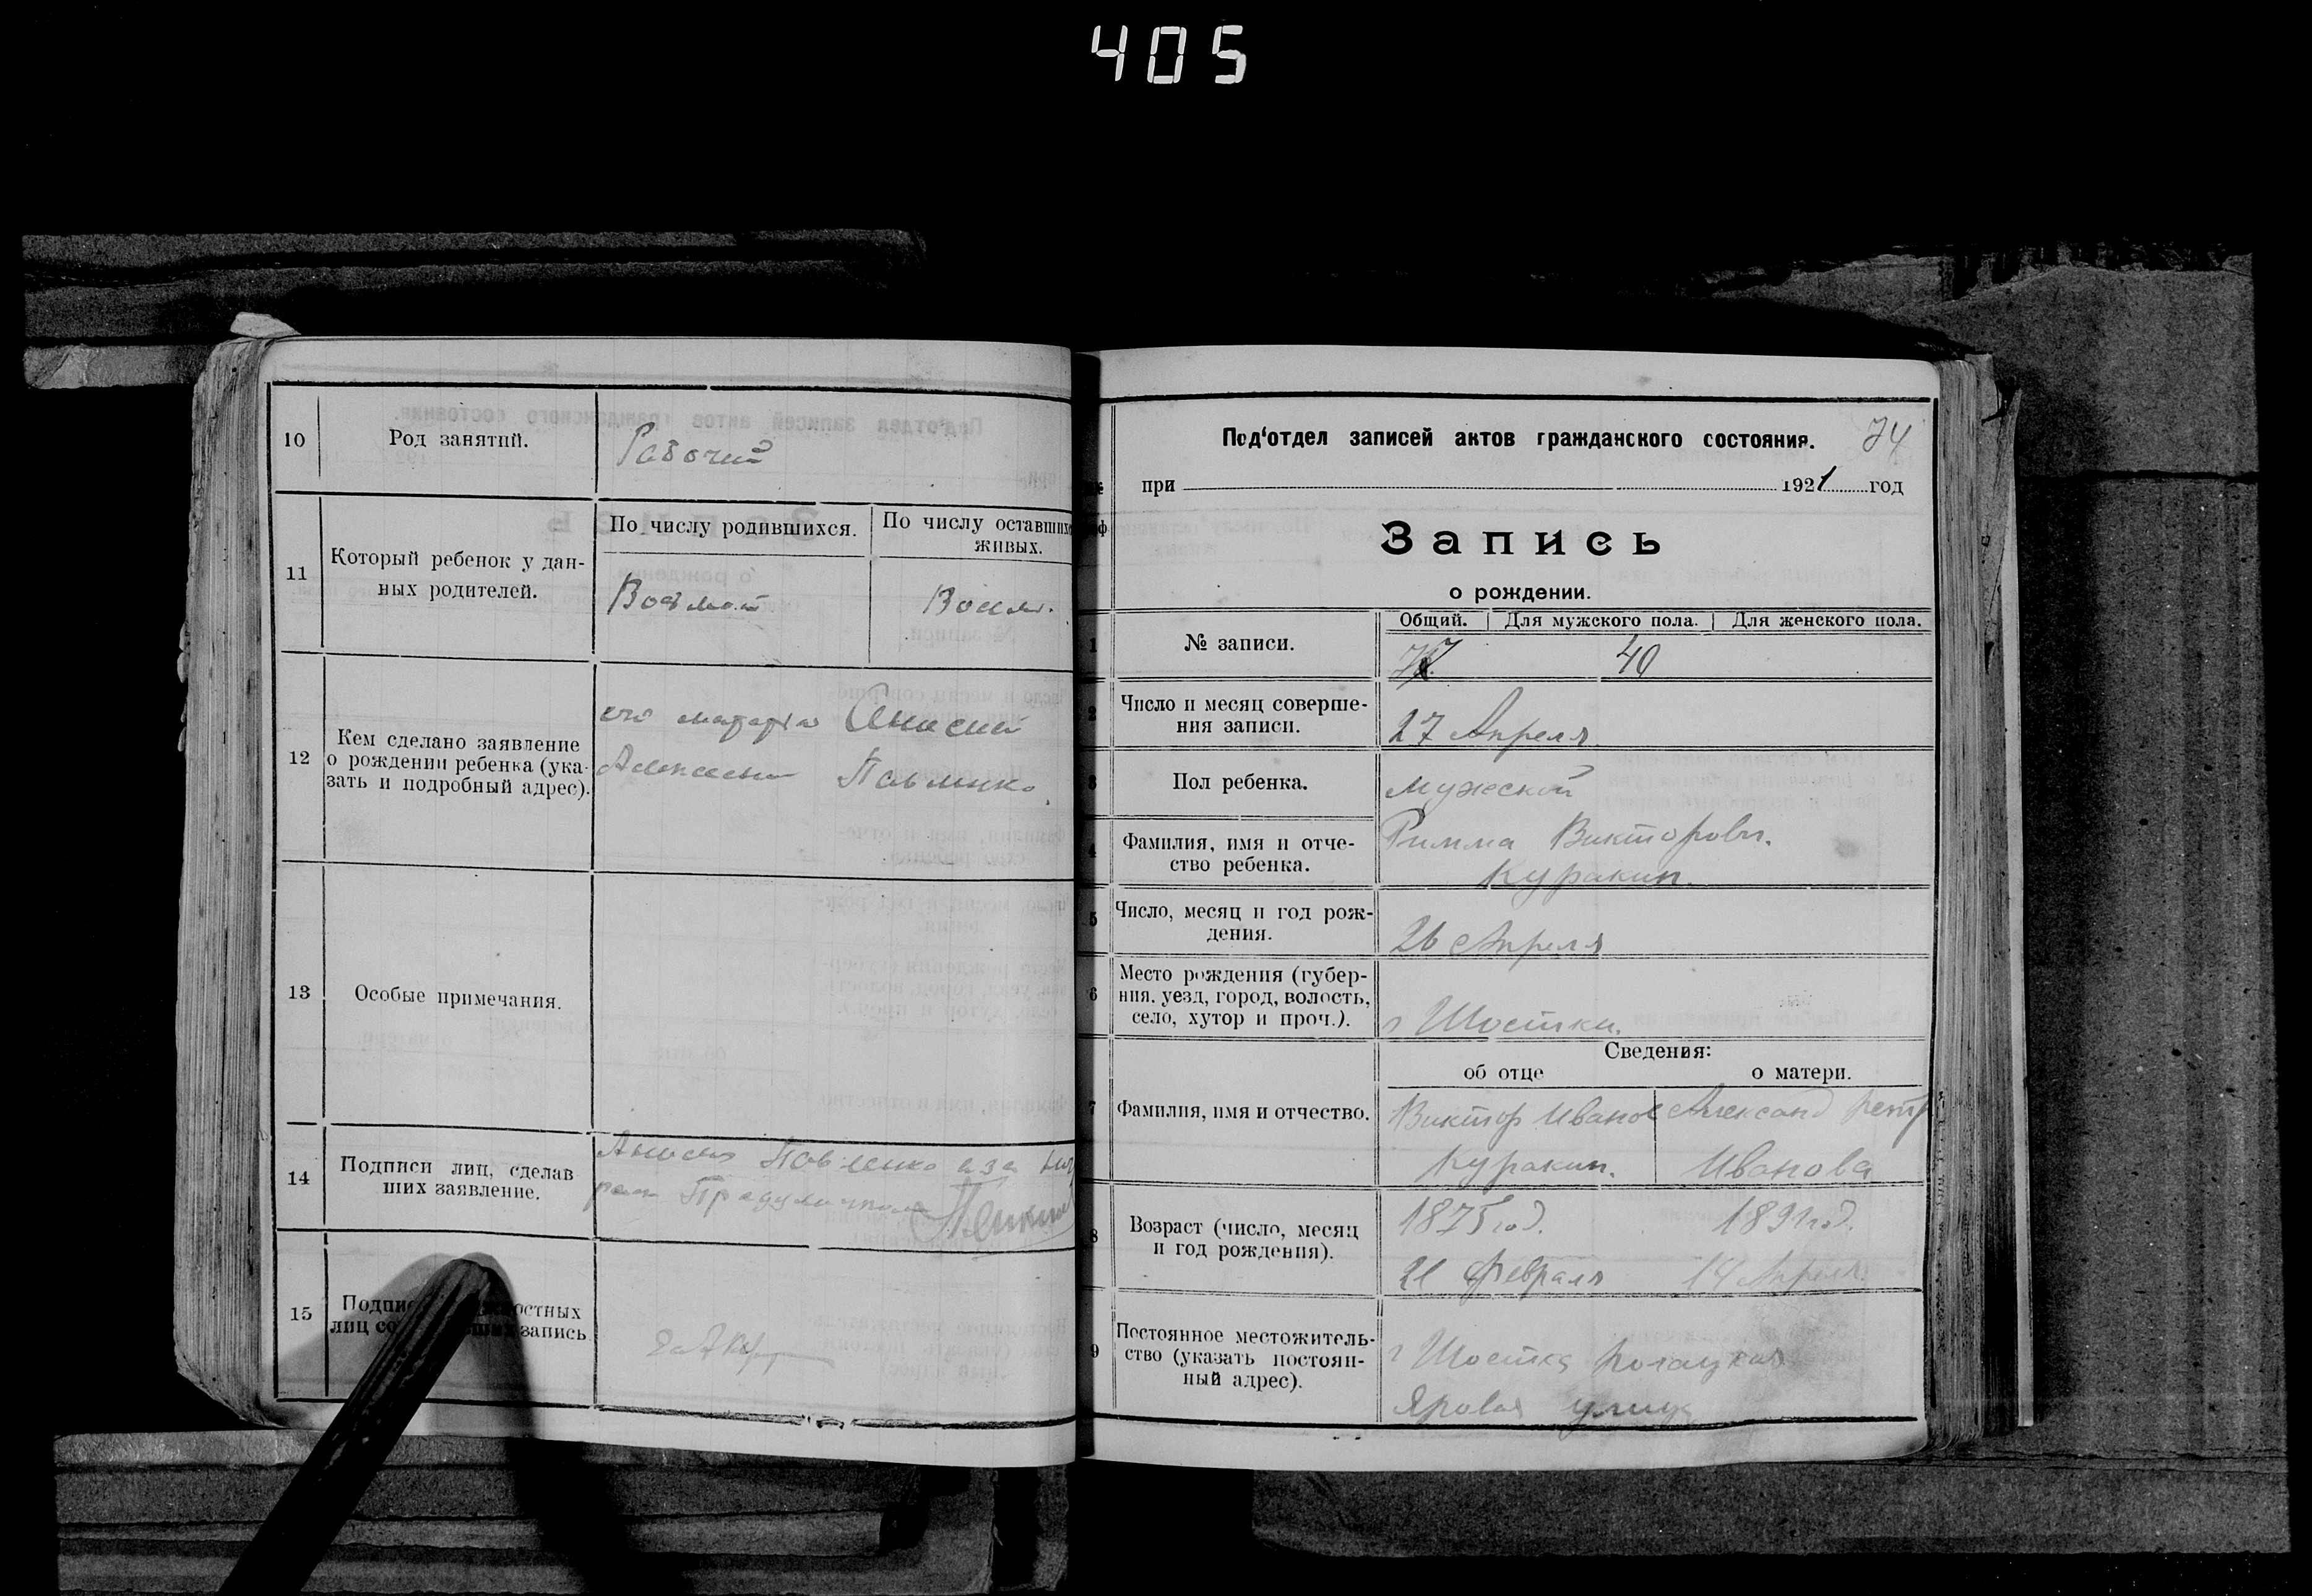 405
10 Род занятий. Рабочий
11 Который ребенок у дан-
ных родителей.
По числу родившихся. По числу оставших
живых.
Восьмой Восьм.
12 Кем сделано заявление
о рождении ребенка (ука-
зать и подробный адрес).
его матери Анисией
Алексеевн Павленко
13 Особые примечания.
14 Подписи лиц, сделав
ших заявление.
Анисия Павленко а за
15 Подпи остных
лиц со запись
Под‘отдел записей актов гражданского состояния. 74
при 1921 год
Запись
о рождении.
Общий. Для мужского пола. Для женского пола.
1 № записи. 77 40
2 Число и месяц соверше-
ния записи.
27 Апреля
3 Пол ребенка. мужской
4 Фамилия, имя и отче-
ство ребенка.
Римма Викторовч.
Куракин.
5 Число, месяц и год рож-
дения.
26 Апреля
6 Место рождения (губер-
ния, уезд, город, волость,
село, хутор и проч.).
г Шостки.
Сведения:
об отце о матери.
7 Фамилия, имя и отчество.
Виктор Иванов Александ Петр
Куракин. Иванова
8 Возраст (число, месяц
и год рождения).
1875 год. 1891 год.
21 февраля 14 Апреля.
9 Постоянное местожитель-
ство (указать постоян-
ный адрес).
г Шостка
Яровая улица